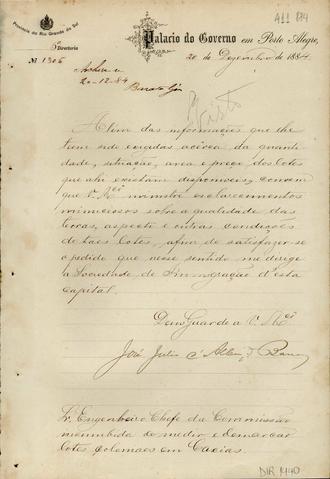 A11 184
Provincia do Rio Grande do Sul
Palacio do Governo em Porto Alegre,
Directoria
20 de Dezembro de 1884
Nº 1306
20-12-84
Visto
Alem das informações que lhe
tem sido exigidas acêrca da quanti-
dade, situação, area e preço dos lotes
que ahi existam disponiveis, convem
que V. Mcê ministre esclarecimentos
minuciosos sobre a qualidade das
terras, aspecto e outras condições
de taes lotes, afim de satisfazer-se
o pedido que nesse sentido me dirige
a Sociedade de Immigração d'esta
capital.
Deus Guarde a V. Mcê
José Julio d'Albuqe Barros
Sr. Engenheiro Chefe da Commissão
incumbida de medir e demarcar
lotes coloniaes em Caxias.
DIR 1440